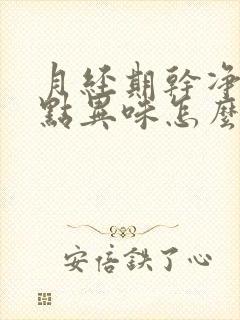 月经期幹净
點異味怎麽
安倍鉄了心